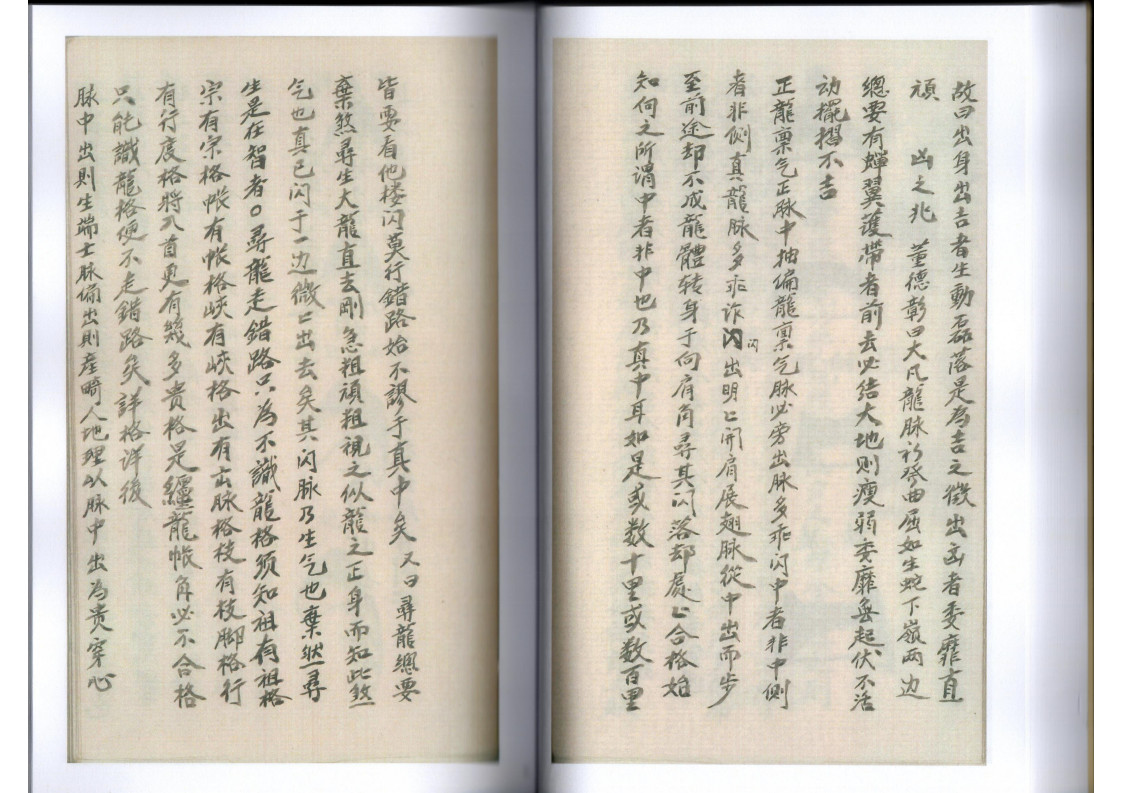 故曰出身出吉者生動磊落是為吉之徵出凶者委靡直
頑 凶之兆 董德彰曰大凡龍脉行發曲屈如生蛇下嶺兩边
總要有蟬翼護帶者前去必结大地则瘦弱委靡無起伏不活
动擺摺不吉
正龍禀气正脉中抽偏龍禀气脉必旁出脉多乖闪中者非中側
者非侧真龍脉多乖诈闪闪出明〻開肩展翅脉從中出而步
至前途却不成龍體转身于向肩角尋其闪落却處〻合格始
知何之所谓中者非中也乃真中耳如是或数十里或数百里
皆要看他楼闪莫行錯路始不謬于真中矣 又曰尋龍總要
棄煞尋生大龍直去剛急粗頑粗視之似龍之正身而知此煞
气也真已闪于一边微〻出去矣其闪脉乃生气也棄煞尋
生是在智者○尋龍走錯路只為不識龍格须知祖有祖格
宗有宗格帐有帐格峽有峽格出有出脉格枝有枝脚格行
有行度格將入首更有幾多贵格是纏龍帐角必不合格
只能識龍格便不走錯路矣詳格详後
脉中出則生端士脉偏出則産畸人地理以脉中出為贵穿心